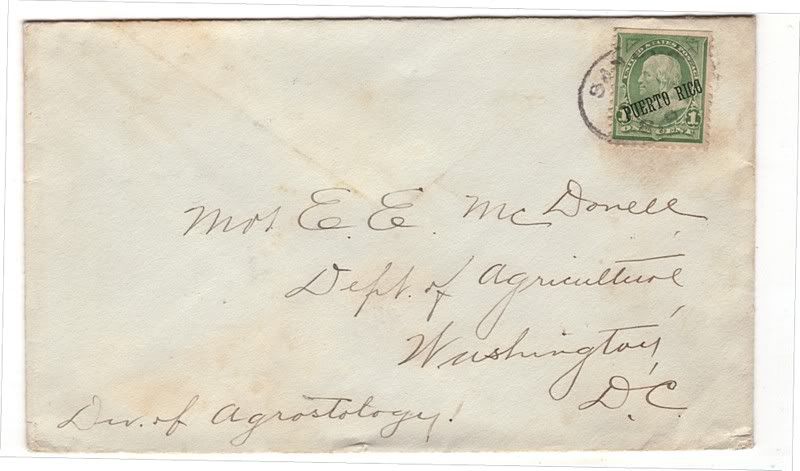 SAN
UNITED STATES POSTAGE
PUERTO RICO
1 1
ONE CENT
Mrs E. E. McDonell,
Dept. of Agriculture,
Washington,
D.C.
Div. of Agrostology.